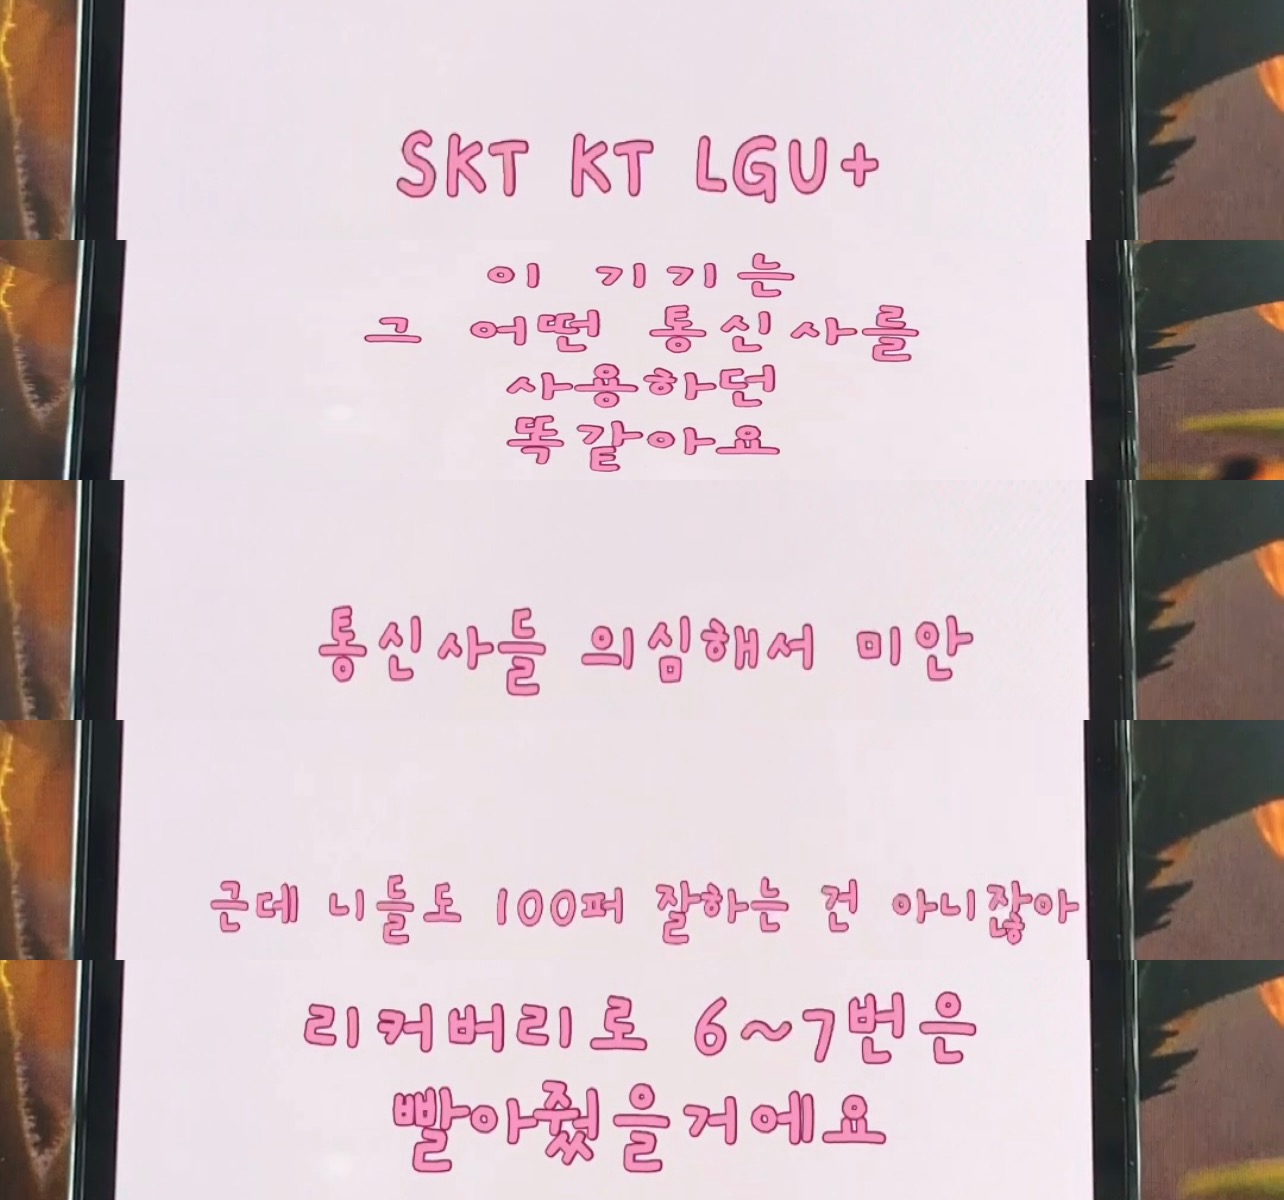 SKT KT LGU+
이 기기는
그 어떤 통신사를
사용하던
똑같아요
통신사들 의심해서 미안
근데 니들도 100퍼 잘하는 건 아니잖아
리커버리로 6~7번은
빨아줬을거에요